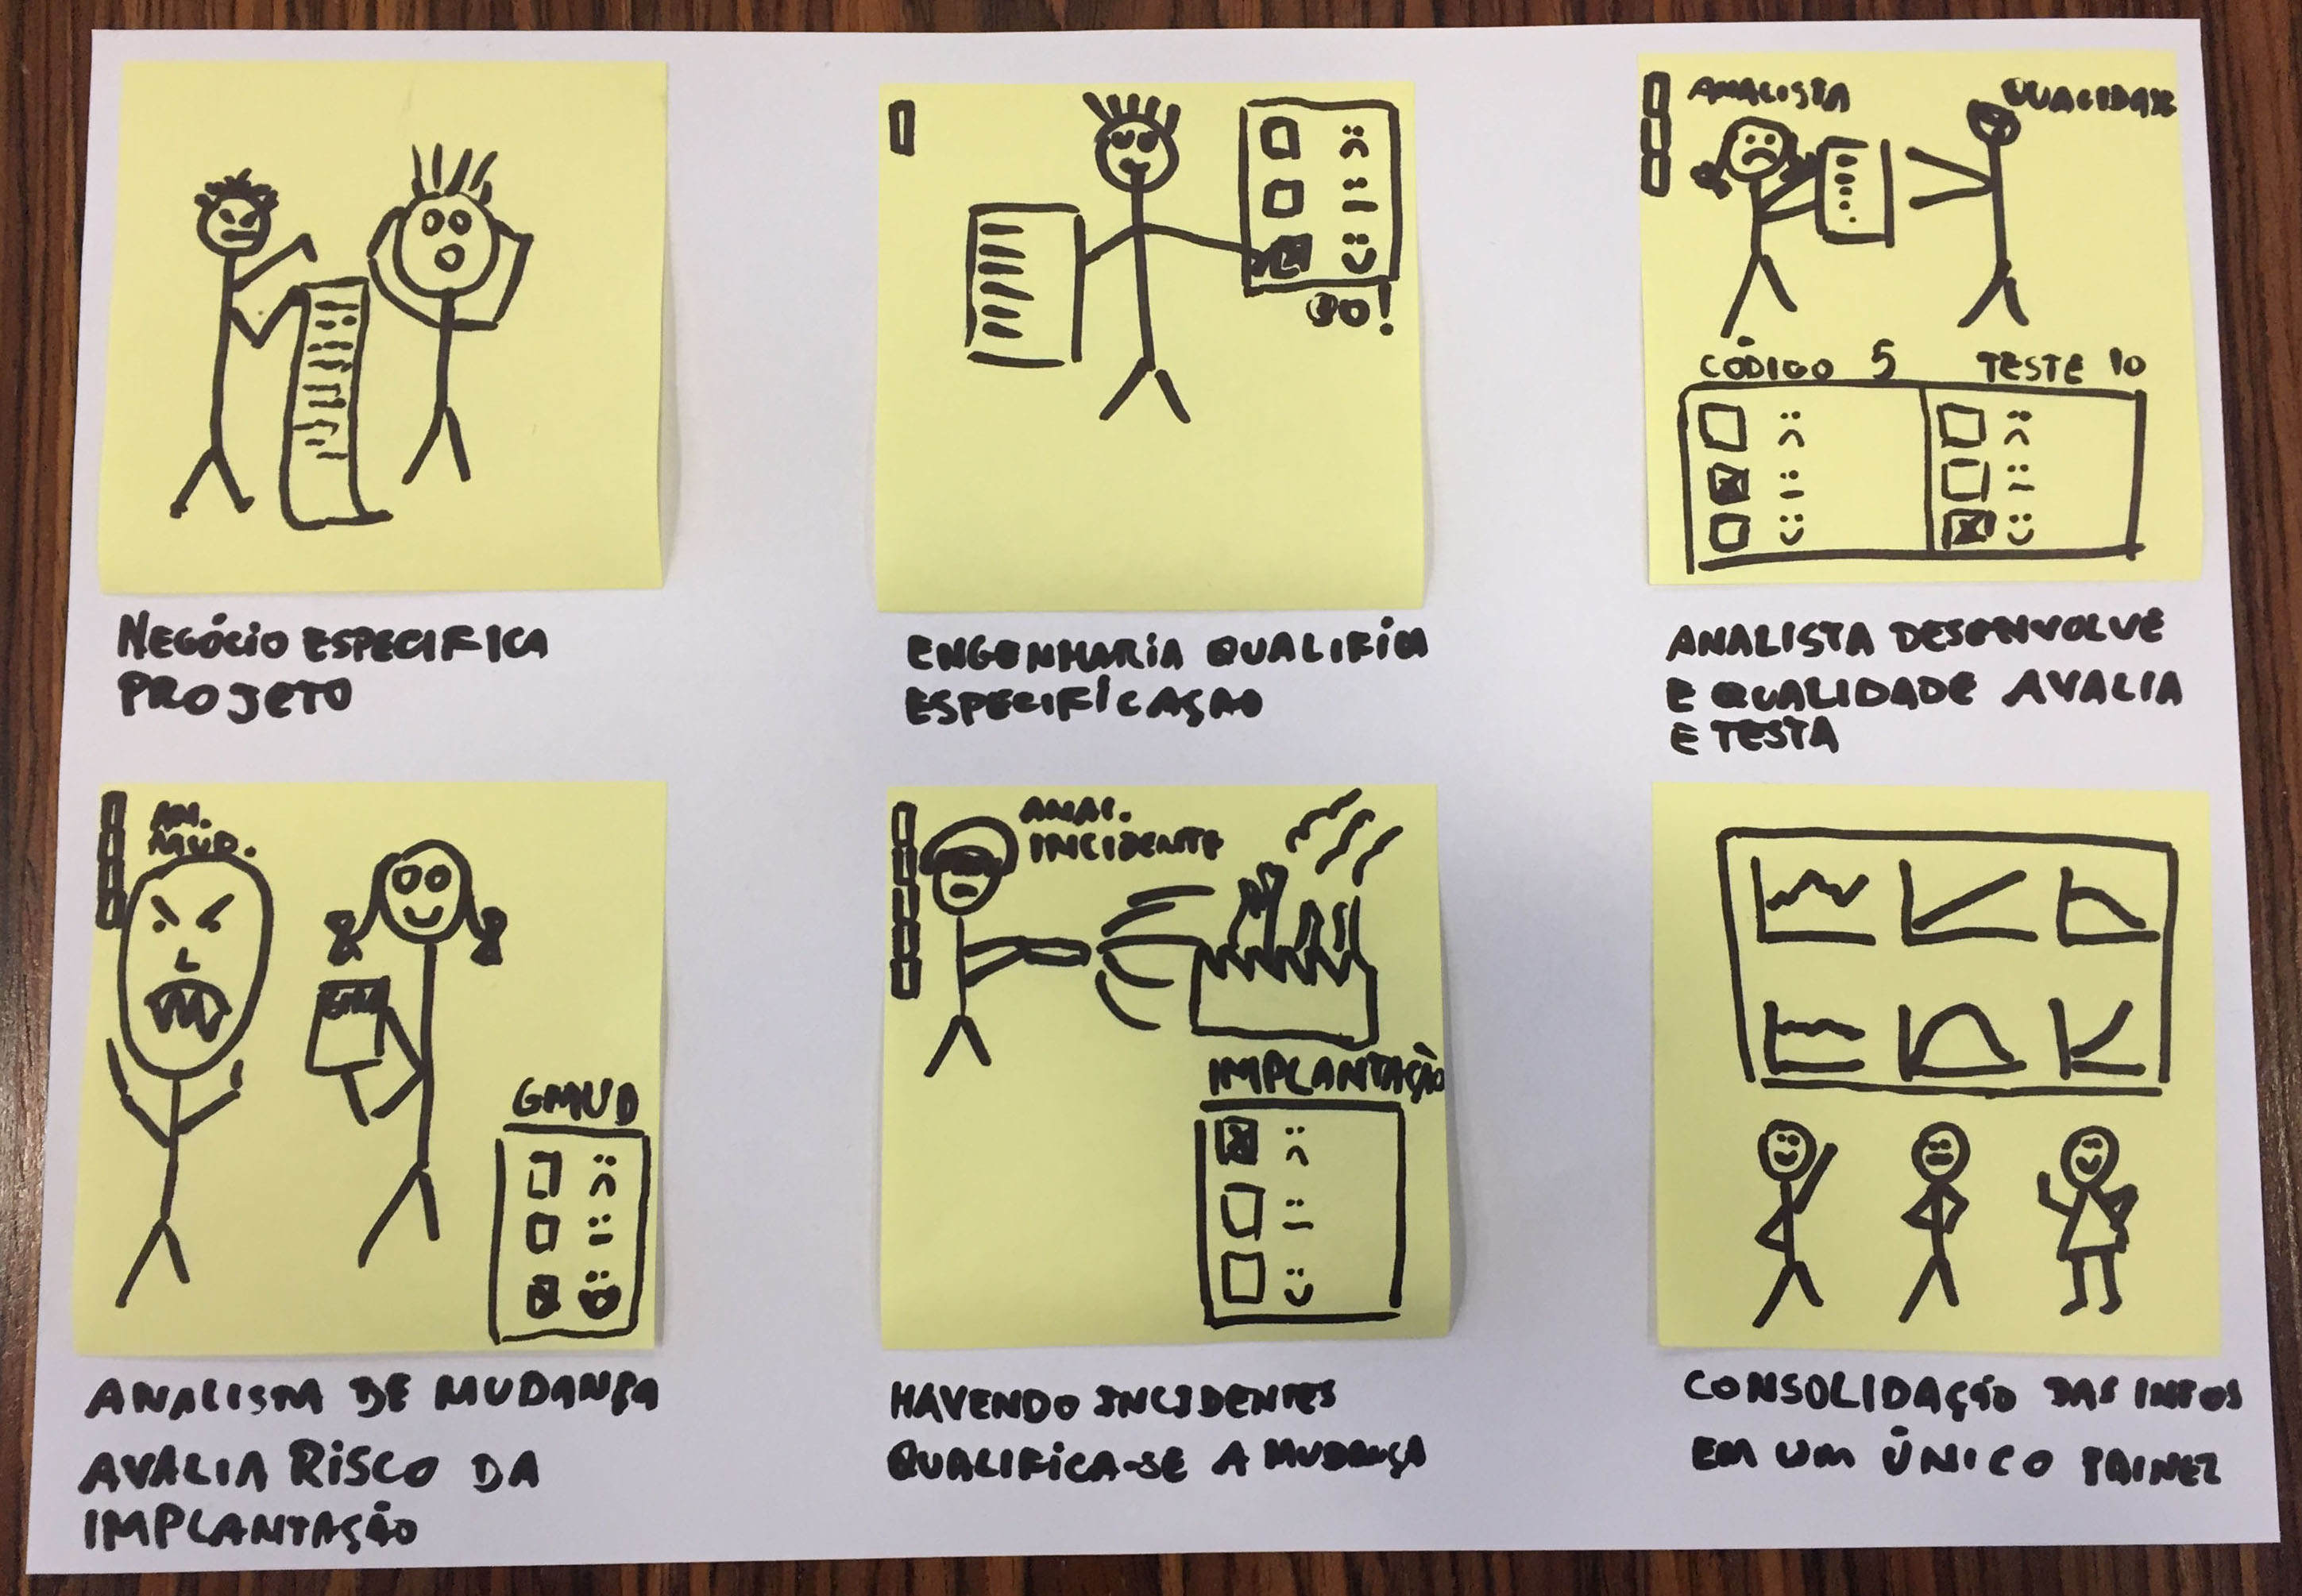 NEGÓCIO ESPECIFICA
PROJETO
GO!
ENGENHARIA QUALIFICA
ESPECIFICAÇAO
ANALISTA QUALIDADE
CÓDIGO 5 TESTE 10
ANALISTA DESENVOLVE
E QUALIDADE AVALIA
E TESTA
AN.
MUD.
GMUD
ANALISTA DE MUDANÇA
AVALIA RISCO DA
IMPLANTAÇÃO
ANAL.
INCIDENTE
IMPLANTAÇÃO
HAVENDO INCIDENTES
QUALIFICA-SE A MUDANÇA
CONSOLIDAÇÃO DAS INFOS
EM UM ÚNICO PAINEL